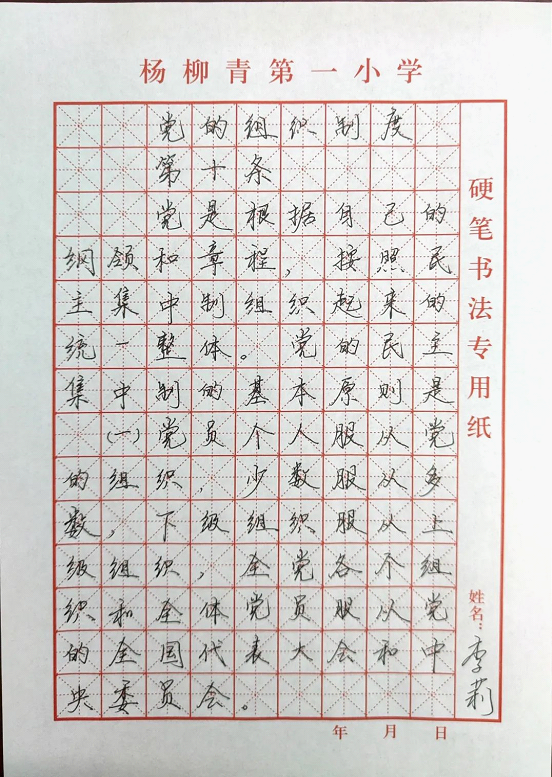 杨柳青第一小学
党的组织制度
第十条
党是根据自己的
纲领和章程，按照民
主集中制组织起来的
统一整体。党的民主
集中制的基本原则是
（一）党员个人服从党
的组织，少数服从多
数，下级组织服从上
级组织，全党各个组
织和全体党员服从党
的全国代表大会和中
央委员会。
硬笔书法专用纸
姓名：李莉
年 月 日